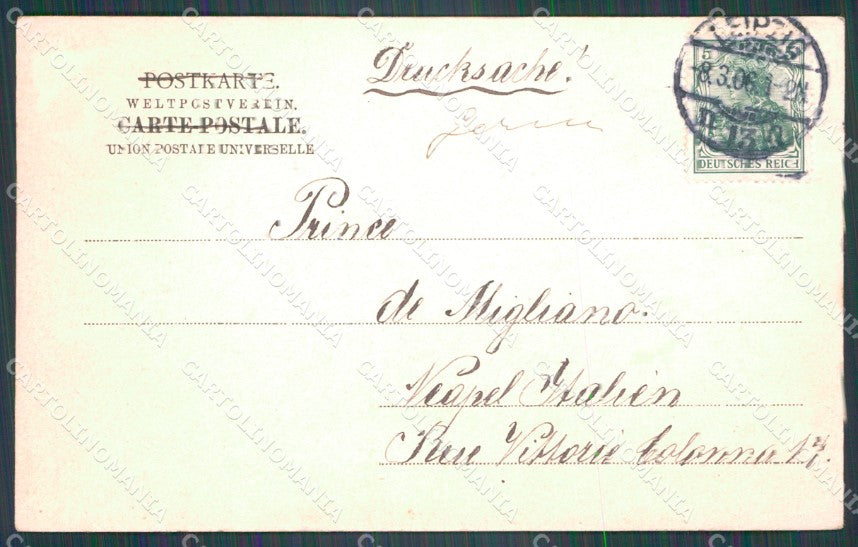 POSTKARTE.
WELTPOSTVEREIN.
CARTE POSTALE.
UNION POSTALE UNIVERSELLE
Drucksache!
LEIPZIG
8.3.06.
13
5
DEUTSCHES REICH
Prince
de Migliano.
Neapel Italien
Rue Vittorio Colonna
CARTOLINOMANIA